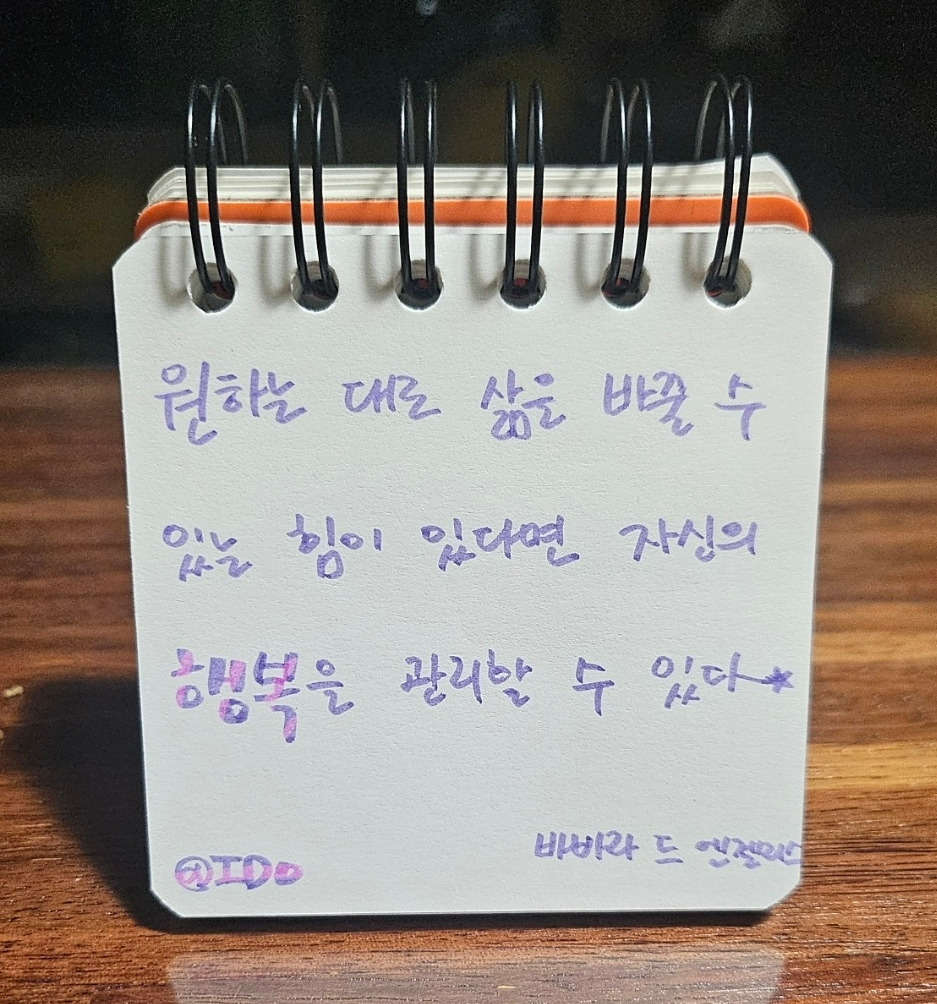 원하는 대로 삶을 바꿀 수
있는 힘이 있다면 자신의
행복을 관리할 수 있다
바바라 드 엔젤리스
@IDo